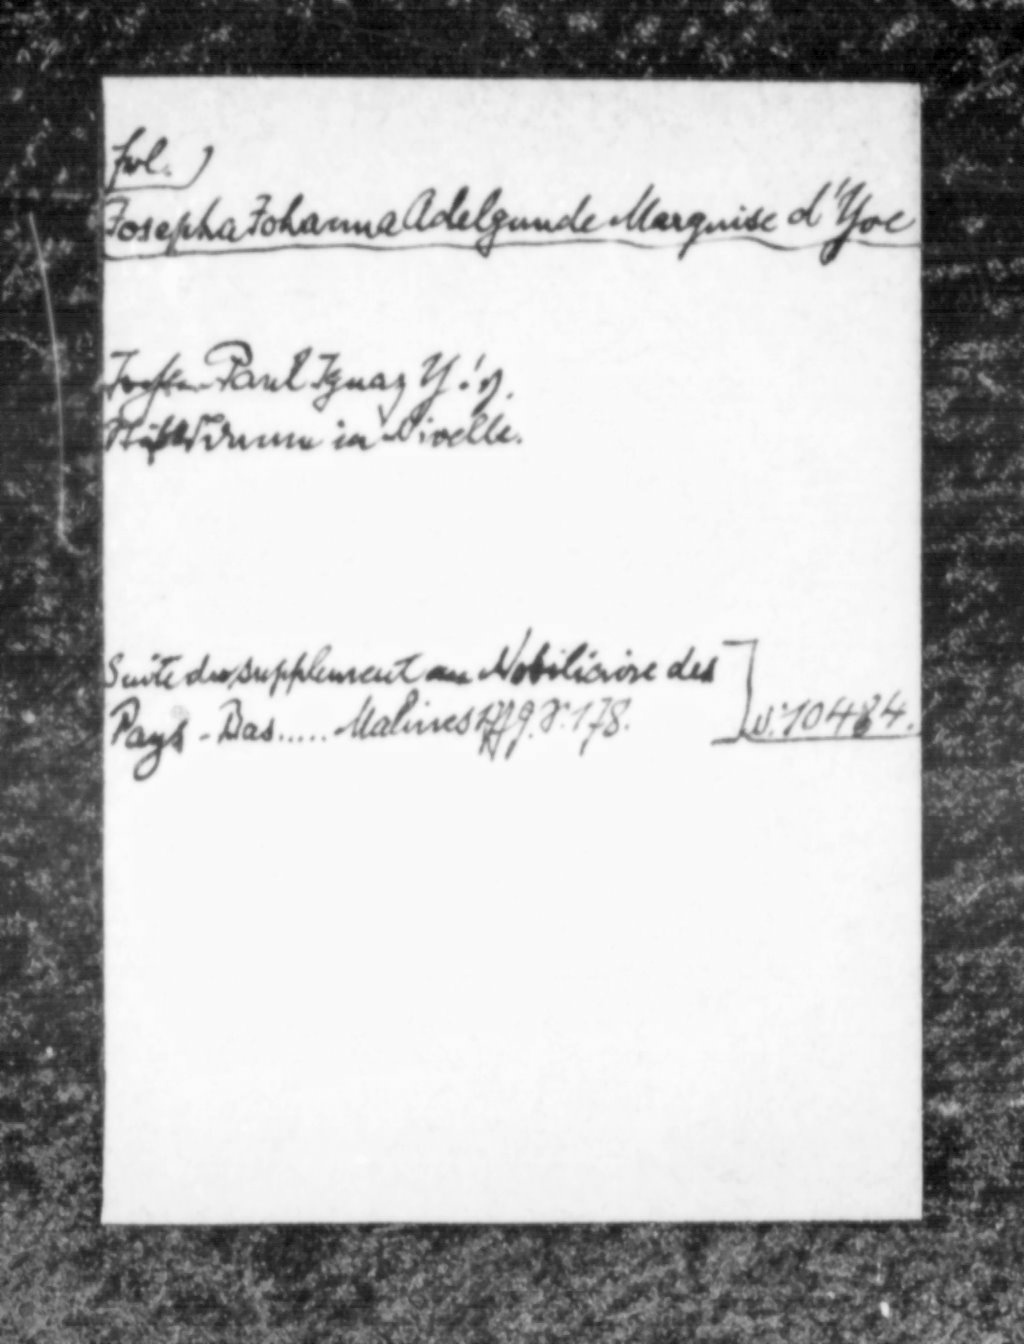 frl. )
Josepha Johanna Adelgunde Marquise d'Yve
Tochter Paul Ignaz Y. 's.
Stiftsdame in Nivelle.
Suite du supplement au Nobiliaire des
Pays - Bas ..... Malines 1779. S. 178.
v. 10484.